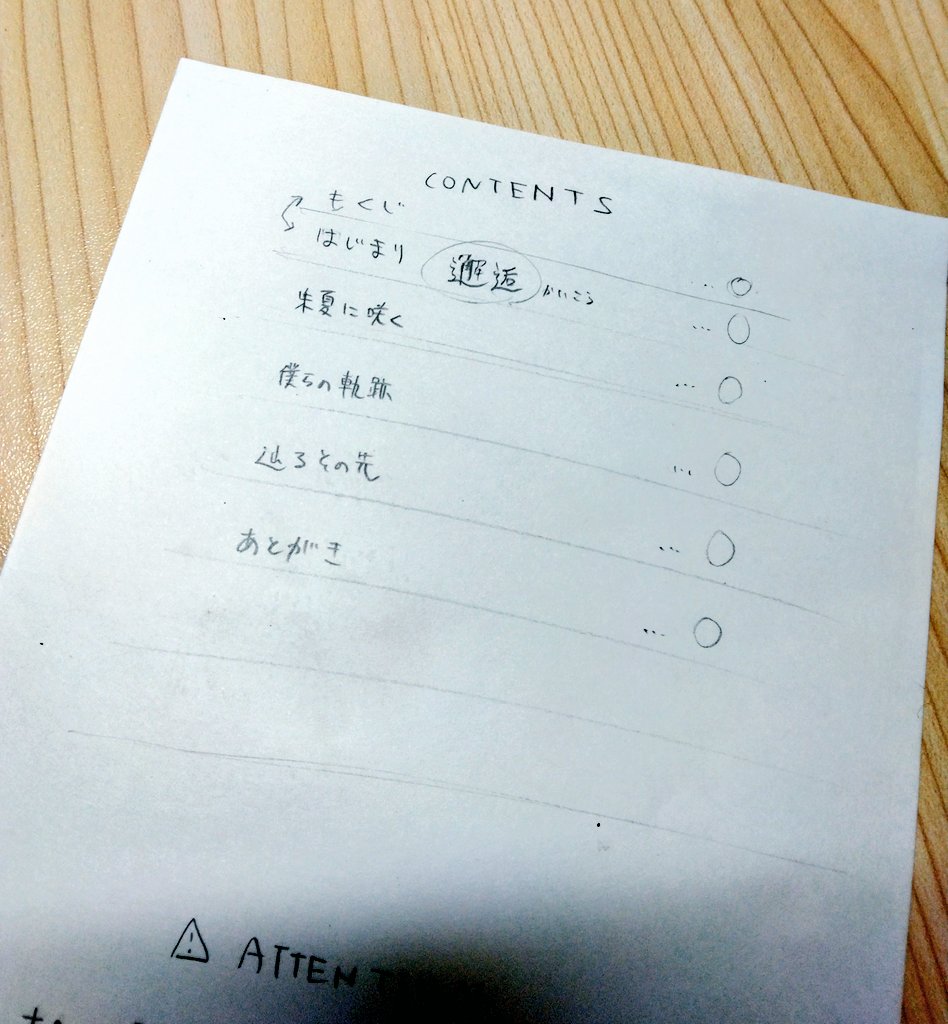 CONTENTS
もくじ ... ○
はじまり 邂逅 かいこう ... ○
朱夏に咲く ... ○
僕らの軌跡 ... ○
辿るその先 ... ○
あとがき ... ○
⚠ ATTENT